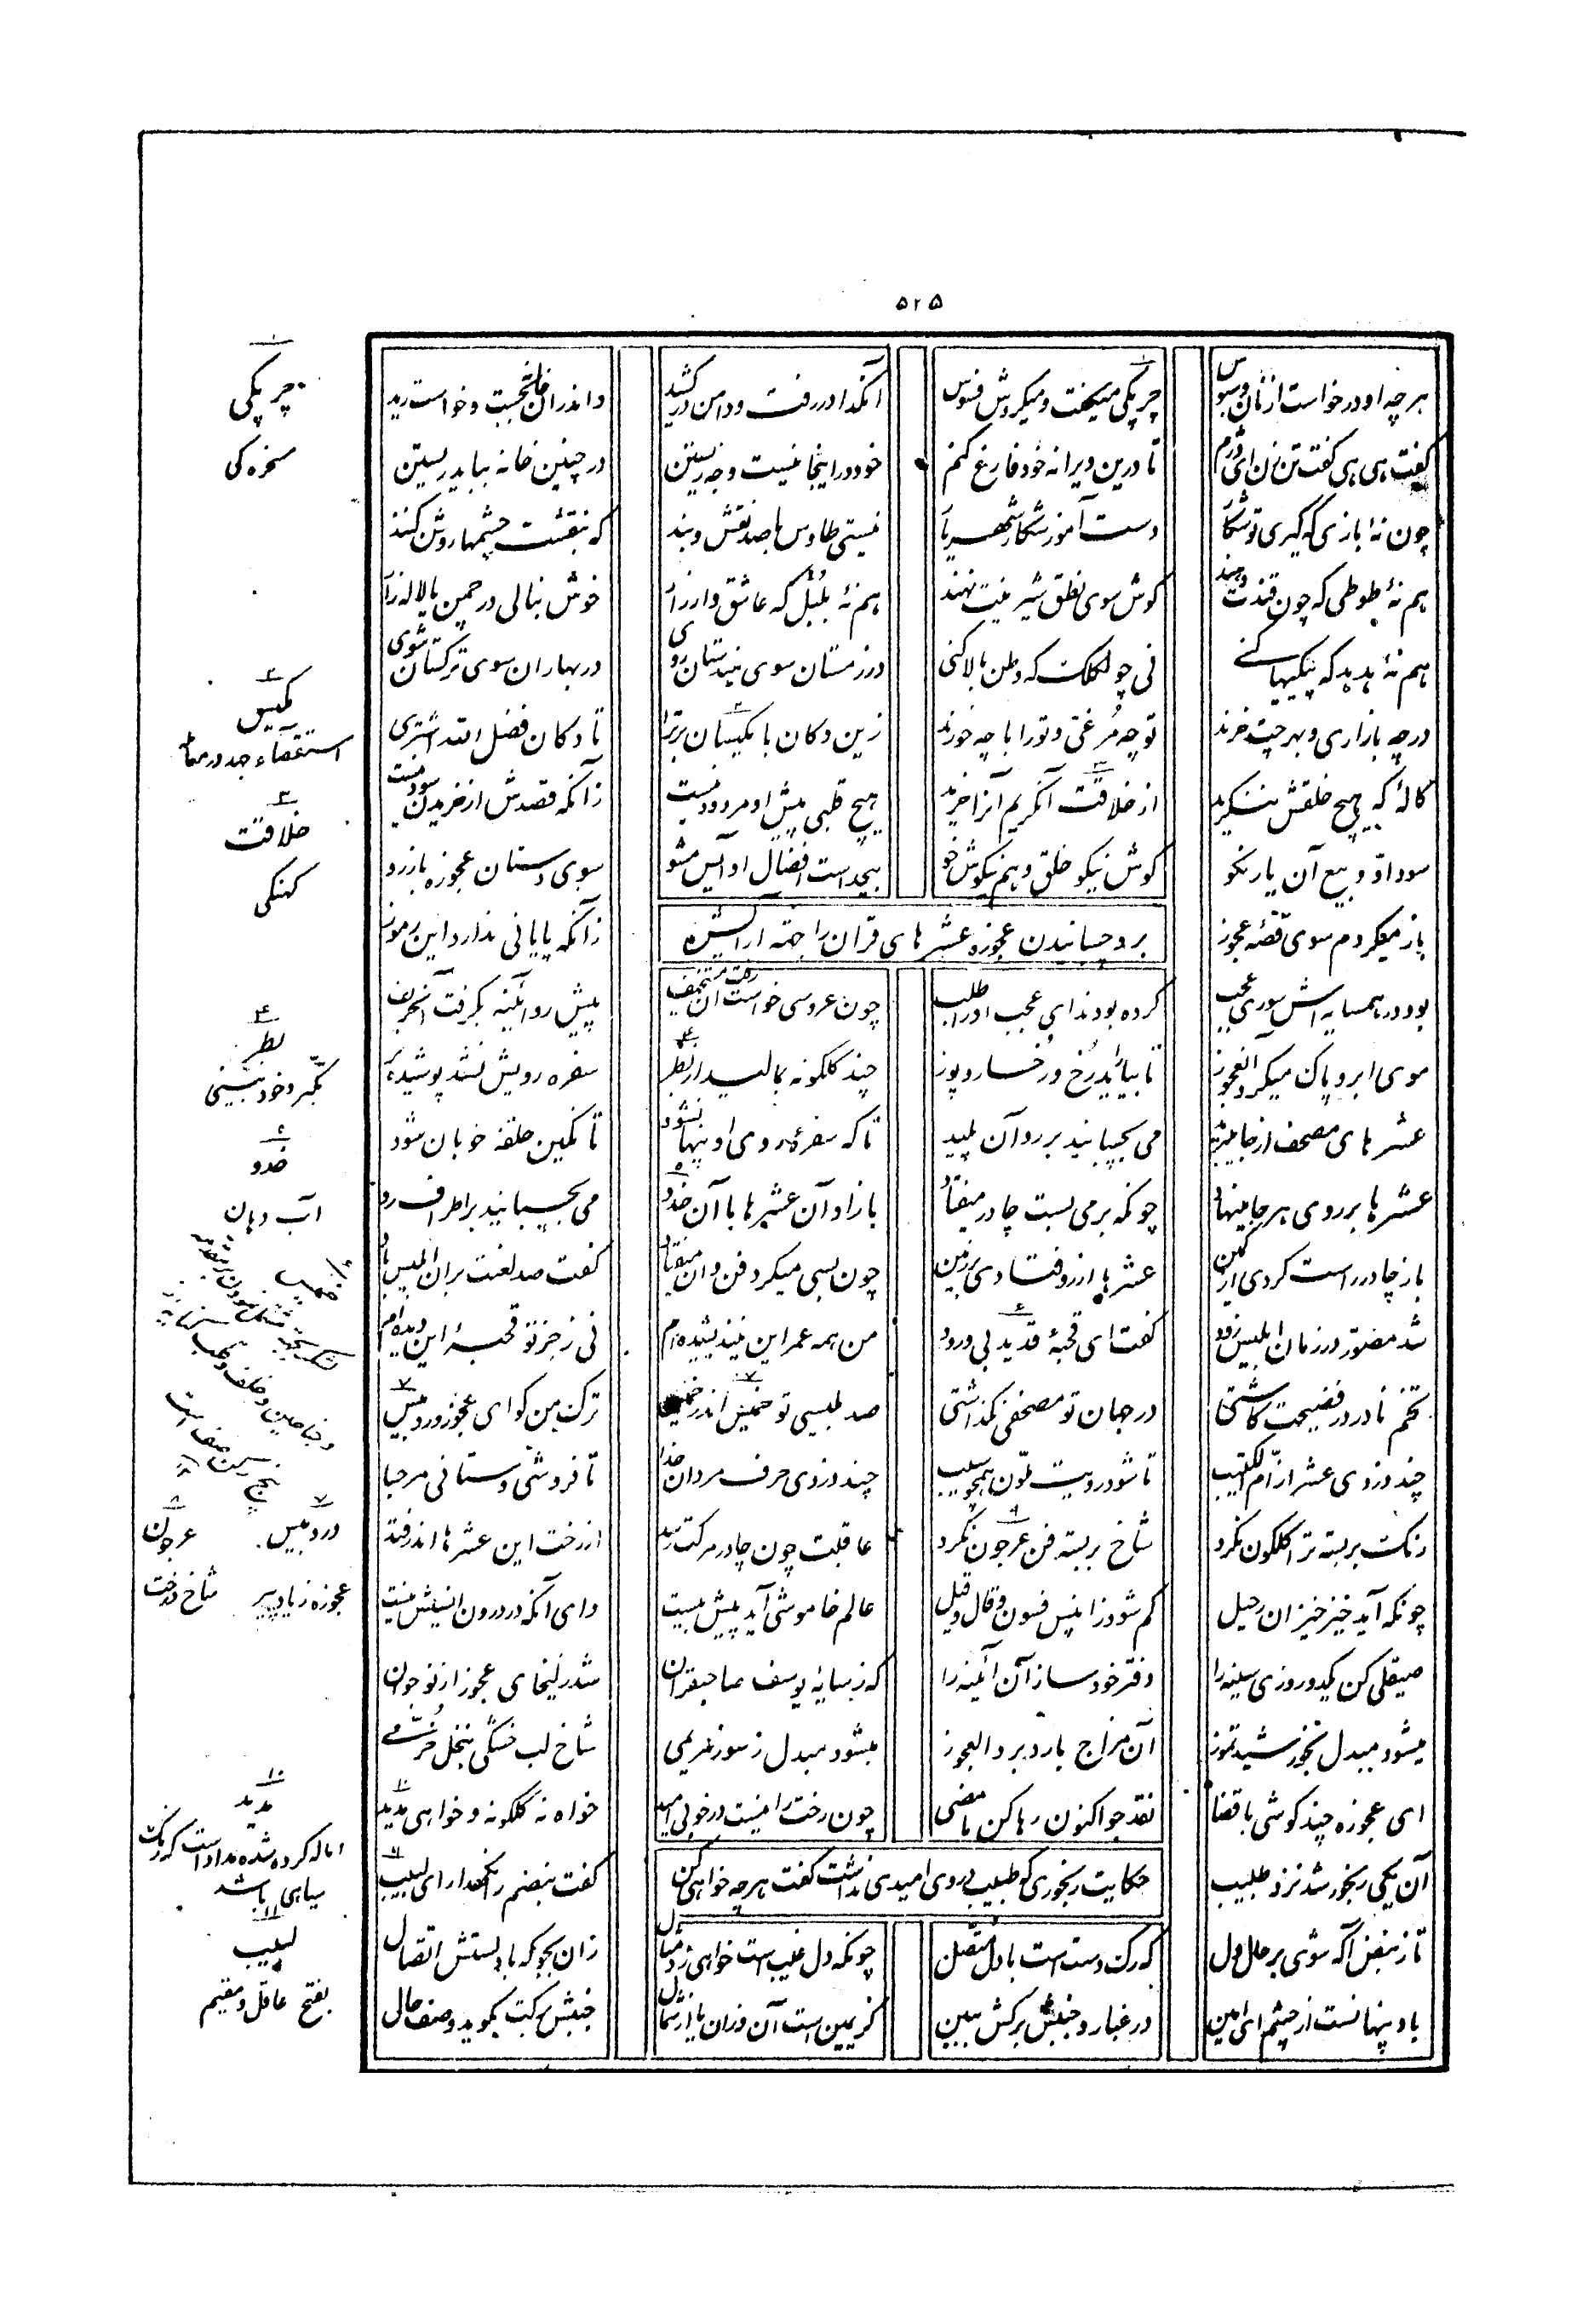 ۵۲۵
هر چه او درخواست از نان و سبوس
چربکی میگفت و میکردش فسوس
آنگدا در رفت و دامن در کشید
واندران خانه بجست و خواست رید
گفت هی هی گفت تن زن ای دژم
تا درین ویرانه خود فارغ کنم
خود در اینجا نیست وجه زیستن
در چنین خانه بباید ریستن
چون نۀ بازی که گیری تو شکار
دست آموز شکار شهریار
نیستی طاوس با صد نقش و بند
که بنقشت چشمها روشن کنند
هم نۀ طوطی که چون قندت دهند
گوش سوی نطق شیرینت نهند
هم نۀ بلبل که عاشق وار زار
خوش بنالی در چمن یا لاله زار
هم نۀ هدهد که پیکیها کنی
نی چو لکلک که وطن بالا کنی
در زمستان سوی هندستان روی
در بهاران سوی ترکستان شوی
در چه بازاری و بهر چت خرند
تو چه مرغی و تو را با چه خورند
زین دکان با مکیسان برتر آ
تا دکان فضل الله اشتری
کالۀ که هیچ خلقش ننگرید
از خلاقت آنکریم آنرا خرید
هیچ قلبی پیش او مردود نیست
زآنکه قصدش از خریدن سود نیست
سود او و بیع آن یار نکو
گوش نیکو خلق و هم نیکوش خو
بیحد است افضال او آیس مشو
سوی دستان عجوزه باز رو
باز میگردم سوی قصۀ عجوز
زآنکه پایانی ندارد این رموز
بر دچسبانیدن عجوزه عشرهای قرآن را جهة آرایش
بود در همسایه اش سوری عجب
کرده بودند ای عجب او را طلب
چون عروسی خواست رفت آن مستخیف
پیش رو آئینه بگرفت آنحریف
موی ابرو پاک میکرد آنعجوز
تا بیاراید رخ و رخسار و پوز
چند گلگونه بمالید از بطر
سفره رویش نشد پوشیده تر
عشرهای مصحف از جا میبرید
می بچسبانید بر رو آن پلید
تا که سفرۀ روی او پنهان شود
تا نگین حلقه خوبان شود
عشرها بر روی هر جا مینهاد
چونکه بر می بست چادر میفتاد
باز او آن عشرها با آن خدو
می بچسبانید بر اطراف رو
باز چادر راست کردی آن تکین
عشرها از رو فتادی بر زمین
چون بسی میکرد فن و آن میفتاد
گفت صد لعنت بران ابلیس باد
شد مصور در زمان ابلیس زود
گفت ای قحبۀ قدید بی ورود
من همه عمر این نیندیشیده ام
نی ز جز تو قحبۀ این دیده ام
تخم نادر در فضیحت کاشتی
در جهان تو مصحفی نگذاشتی
صد بلیسی تو خمیس اندر خمیس
ترک من گو ای عجوز دردبیس
چند دزدی عشر از ام الکتیب
تا شود رویت ملون همچو سیب
چند دزدی حرف مردان خدا
تا فروشی و ستانی مرحبا
رنگ بر بسته ترا گلگون نکرد
شاخ بر بسته فن عرجون نکرد
عاقبت چون چادر مرگت رسد
از رخت این عشرها اندر فتد
چونکه آید خیز خیزان رحیل
کم شود زان پس فسون و قال و قیل
عالم خاموشی آید پیش بیست
وای آنکه در درون انسیش نیست
صیقلی کن یکدو روزی سینه را
دفتر خود ساز آن آئینه را
که ز سایۀ یوسف صاحبقران
شد زلیخای عجوز از نو جوان
میشود مبدل بخورشید تموز
آن مزاج بارد برد العجوز
میشود مبدل ز سوز مریمی
شاخ لب خشکی بنخل خرمی
ای عجوزه چند کوشی با قضا
نقد جو اکنون رها کن ما مضی
چون رخت را نیست در خوبی امید
خواه نه گلگونه و خواهی مدید
حکایت رنجوری که طبیب بروی امیدی نداشت گفت هر چه خواهی کن
آن یکی رنجور شد نزد طبیب
گفت نبضم را نگهدار ای لبیب
تا ز نبض آگه شوی بر حال دل
که رگ دست است با دل متصل
چونکه دل غیب است خواهی زو مثال
زان بجو که با دلستش اتصال
باد پنهانست از چشم ای امین
در غبار و جنبش برگش ببین
کز یمین است آن وزان یا از شمال
جنبش برگت بگوید وصف حال
۱
چربکی
سخره گی
۲
مکیس
استقصاء جد در معامله
۳
خلاقت
کهنگی
۴
بطر
تکبر و خود بینی
۵
خدو
آب دهان
۶
خمیس
۷
دردبیس
عجوزه زیاد پیر
۹
عرجون
شاخ درخت
۱۰
مدید
اماله کرده شده مداد است که رنگ سیاهی باشد
۱۱
لبیب
بفتح عاقل و مقیم